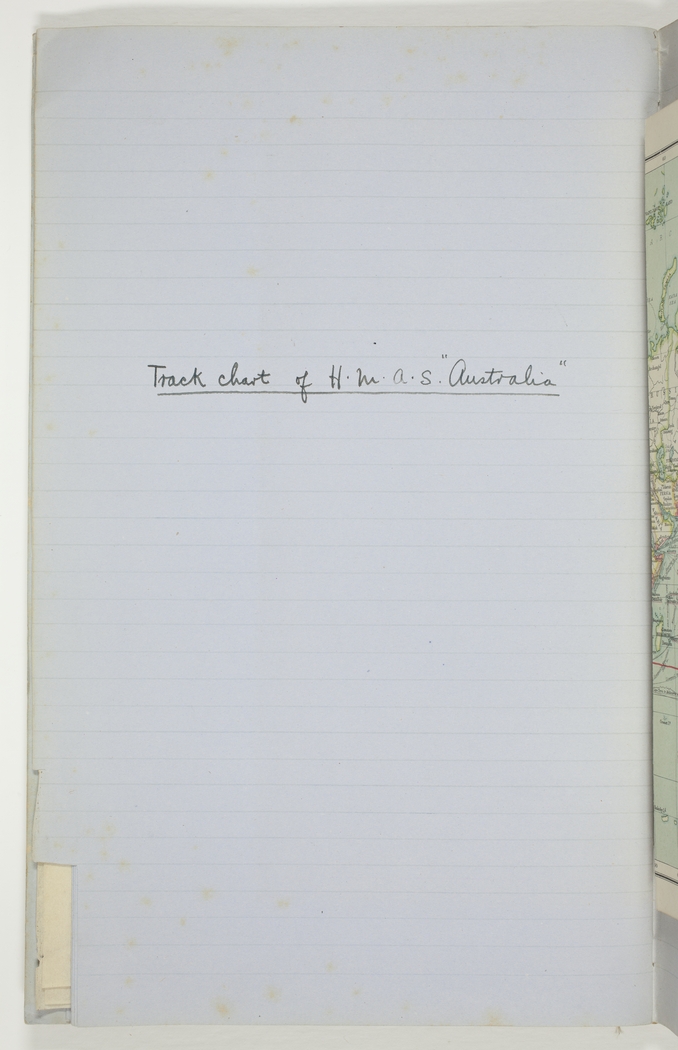 Track chart of H.M.A.S. "Australia"